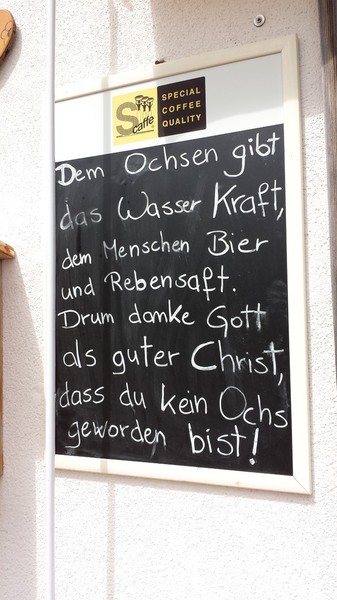 S caffe
SPECIAL
COFFEE
QUALITY
Dem Ochsen gibt
das Wasser Kraft,
dem Menschen Bier
und Rebensaft.
Drum danke Gott
als guter Christ,
dass du kein Ochs
geworden bist!